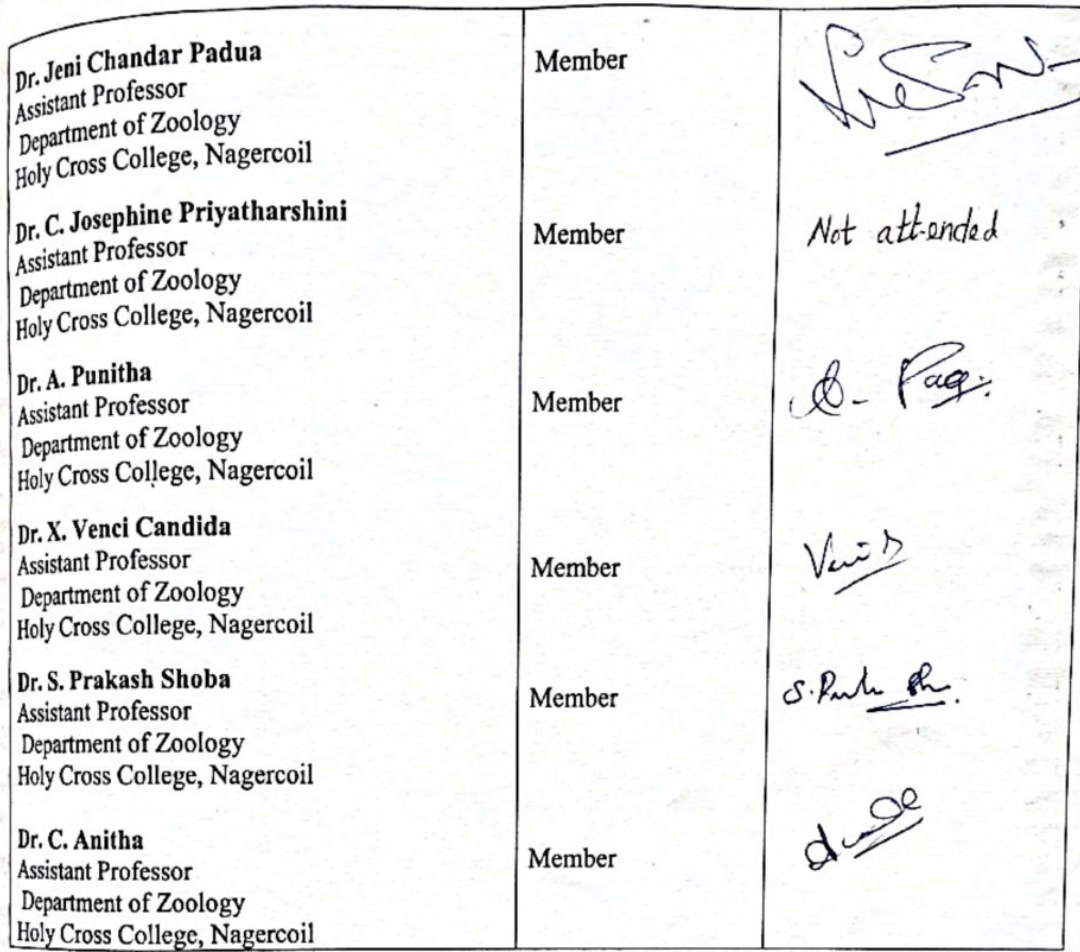 Dr. Jeni Chandar Padua
Assistant Professor
Department of Zoology
Holy Cross College, Nagercoil
Member
Dr. C. Josephine Priyatharshini
Assistant Professor
Department of Zoology
Holy Cross College, Nagercoil
Member
Not attended
Dr. A. Punitha
Assistant Professor
Department of Zoology
Holy Cross College, Nagercoil
Member
Dr. X. Venci Candida
Assistant Professor
Department of Zoology
Holy Cross College, Nagercoil
Member
Dr. S. Prakash Shoba
Assistant Professor
Department of Zoology
Holy Cross College, Nagercoil
Member
Dr. C. Anitha
Assistant Professor
Department of Zoology
Holy Cross College, Nagercoil
Member